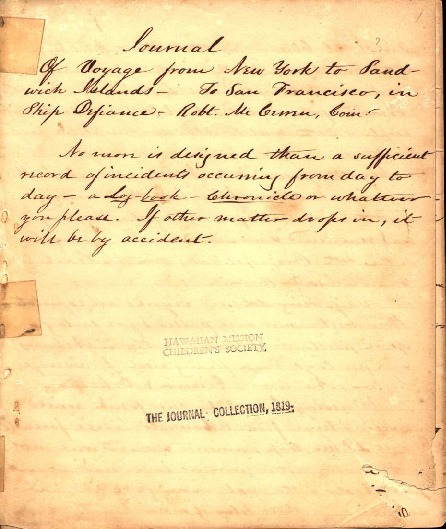 Journal
Of Voyage from New York to Sand-
wich Islands - To San Francisco, in
Ship Defiance - Robt. Mc Cerren, Com:
No more is designed than a sufficient
record of incidents occurring from day to
day - a Log-book - Chronicle or whatever
you please. If other matter drops in, it
will be by accident.
HAWAIIAN MISSION
CHILDREN'S SOCIETY.
THE JOURNAL COLLECTION, 1819-